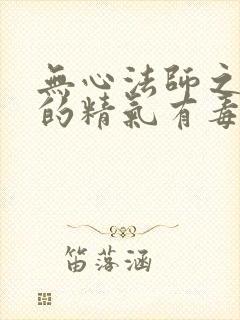 無心法師之
的精氣有毒
笛落涵